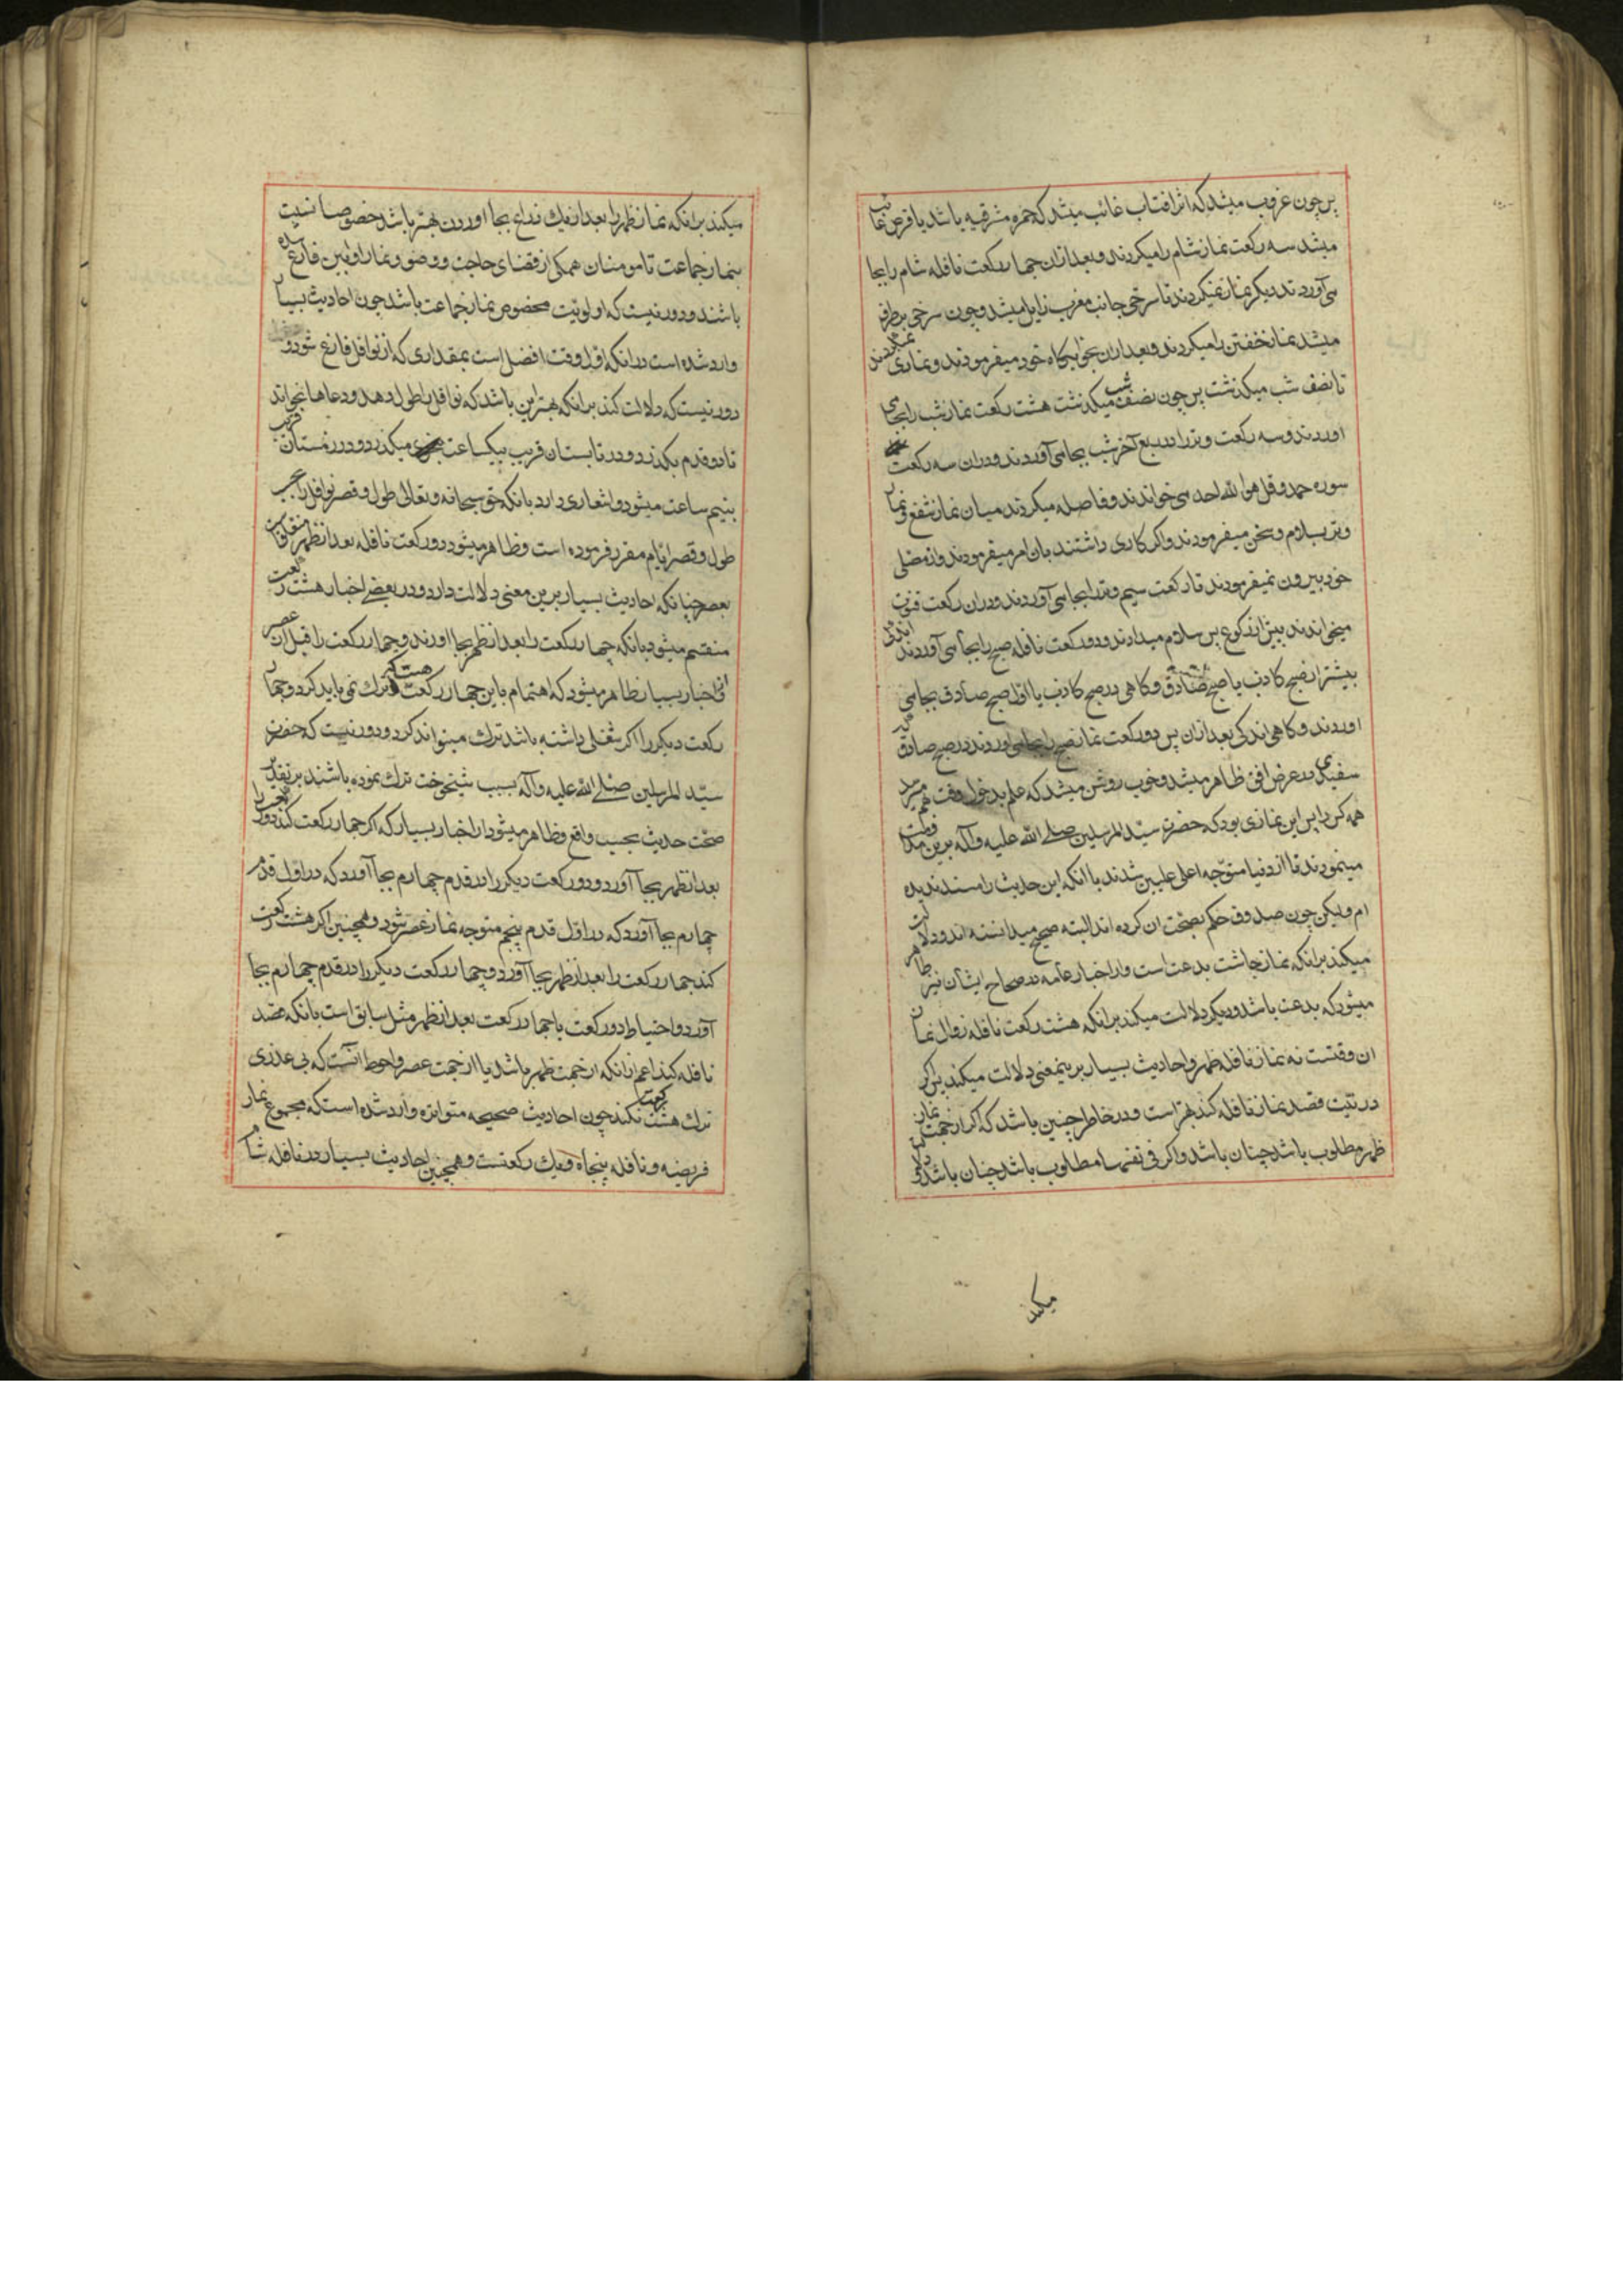 پس چون غروب میشد که اثر افتاب غائب میشد که حمره مشرقیه باشد یا قرص غائب
میشد سه رکعت نماز شام را میکردند و بعد ازان چهار رکعت نافله شام را بجا
می آوردند دیگر نماز نمیکردند تا سرخی جانب مغرب زایل میشد و چون سرخی برطرف
میشد نماز خفتن را میکردند و بعد ازان بخوابگاه خود میفرمودند و نمازی نمیکردند
تا نصف شب میکذشت پس چون نصف شب میکذشت هشت رکعت نماز شب را بجای
اوردند و سه رکعت وتر را در ربع آخر شب بجا می آوردند و دران سه رکعت
سوره حمد و قل هو الله احد می خواندند و فاصله میکردند میان نماز شفع و نماز
وتر بسلام و سخن میفرمودند و اکر کاری داشتند بان امر میفرمودند و از مصلی
خود بیرون نمیفرمودند تا رکعت سیم وتر را بجا می آوردند و دران رکعت قنوت
میخواندند پیش از رکوع پس سلام میدادند و دو رکعت نافله صبح را بجا می آوردند اندکی
پیشتر از صبح کاذب یا صبح صادق و کاهی در صبح کاذب یا اول صبح صادق بجا می
اوردند و کاهی اندکی بعد ازان پس دو رکعت نماز صبح را بجا می اوردند در صبح صادق که
سفیدی در عرض افق ظاهر میشد و خوب روشن میشد که علم بدخول وقت بهم میرسد
همه کس را پس این نمازی بود که حضرت سید المرسلین صلی الله علیه و آله برین مداومت
مینمودند تا از دنیا متوجه اعلی علیین شدند با انکه این حدیث را مسند ندیده
ام ولیکن چون صدوق حکم بصحت ان کرده اند البته صحیح میدانسته اند و دلالت
میکند برانکه نماز چاشت بدعت است و از اخبار عامه در صحاح ایشان نیز ظاهر
میشود که بدعت باشد و دیکر دلالت میکند برانکه هشت رکعت نافله زوال نماز
ان وقتست نه نماز نافله ظهر و احادیث بسیار برینمعنی دلالت میکند پس اکر
در نیت قصد نماز نافله کند بهتر است و در خاطر چنین باشد که اکر از جهت نماز
ظهر مطلوب باشد چنان باشد و اکر فی نفسها مطلوب باشد چنان باشد و دلالت
میکند
میکند برانکه نماز ظهر را بعد از یک ذراع بجا اوردن بهتر باشد خصوصا نسبت
بنماز جماعت تا مومنان همکی از قضای حاجت و وضو و نماز اوابین فارغ شده
باشند و دور نیست که اولویت مخصوص نماز جماعت باشد چون احادیث بسیار
وارد شده است در انکه اول وقت افضل است بمقداری که از نوافل فارغ شود و
دور نیست که دلالت کند برانکه بهتر این باشد که نوافل را طول دهد و دعاها بخواند
تا دو قدم بکذرد و در تابستان قریب بیکساعت میکذرد و در زمستان قریب
بنیم ساعت میشود و اشعاری دارد بانکه حق سبحانه و تعالی طول و قصر نوافل را بحسب
طول و قصر ایام مقرر فرموده است و ظاهر میشود دو رکعت نافله بعد از ظهر
بعصر چنانکه احادیث بسیار برین معنی دلالت دارد و در بعضی اخبار هشت رکعت
منقسم میشود بانکه چهار رکعت را بعد از ظهر بجا اورند و چهار رکعت را قبل از عصر
و از اخبار بسیار ظاهر میشود که اهتمام باین چهار رکعت هست که ترک نمی باید کرد و چهار
رکعت دیکر را اکر شغلی داشته باشد ترک میتواند کرد و دور نیست که حضرت
سید المرسلین صلی الله علیه و آله بسبب شیخوخت ترک نموده باشند بر تقدیر
صحت حدیث بحسب واقع و ظاهر میشود از اخبار بسیار که اکر چهار رکعت کند دو رکعت را
بعد از ظهر بجا آورد و دو رکعت دیکر را در قدم چهارم بجا آورد که در اول قدم
چهارم بجا آورد که در اول قدم پنجم متوجه نماز عصر شود و همچنین اکر هشت رکعت
کند چهار رکعت را بعد از ظهر بجا آورد و چهار رکعت دیکر را در قدم چهارم بجا
آورد و احتیاط دو رکعت یا چهار رکعت بعد از ظهر مثل سابق است بانکه قصد
نافله کند اعم ازانکه از جهت ظهر باشد یا از جهت عصر و احوط آنست که بی عذری
ترک هشت رکعت نکند چون احادیث صحیحه متواتره وارد شده است که مجموع نماز
فریضه و نافله پنجاه و یک رکعتست و همچنین احادیث بسیار در نافله شام